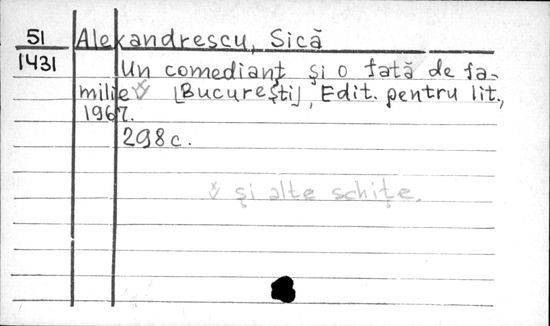 51 Alexandrescu, Sică
1431 Un comediant şi o fată de fa-
milie [Bucureşti], Edit. pentru lit.,
1967.
298 c.
şi alte schiţe.